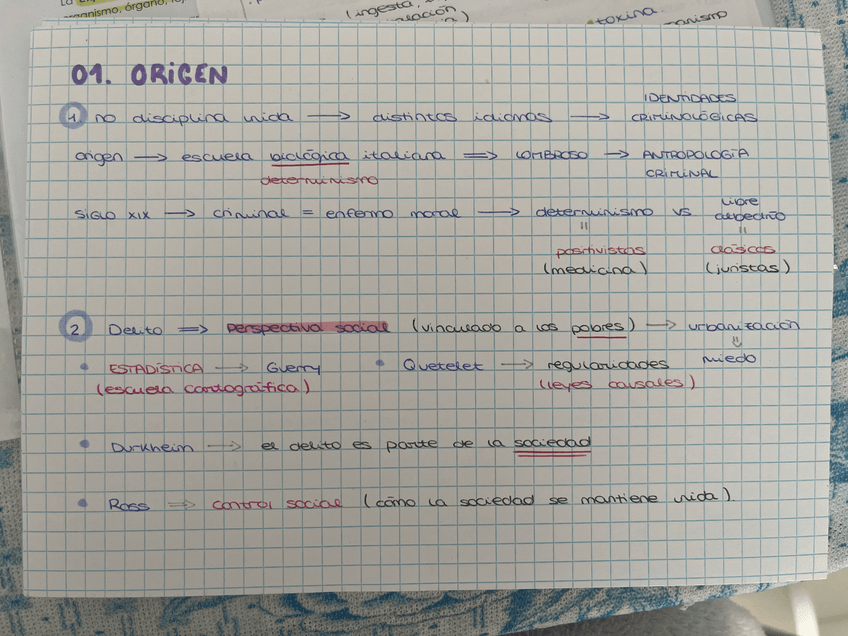 organismo, órgano,
(ingesta,
toxina.
01. ORIGEN
IDENTIDADES
1 no disciplina unida → distintos idiomas → CRIMINOLÓGICAS
origen → escuela biológica italiana ⇒ LOMBROSO → ANTROPOLOGÍA
determinismo CRIMINAL
libre
SIGLO XIX → criminal = enfermo moral → determinismo vs albedrío
= =
positivistas clásicos
(medicina) (juristas)
2 Delito ⇒ perspectiva social (vinculado a los pobres) → urbanización
⇓
miedo
• ESTADÍSTICA → Guerry • Quetelet → regularidades
(escuela cartográfica) (leyes causales)
• Durkheim → el delito es parte de la sociedad
• Ross ⇒ control social (cómo la sociedad se mantiene unida).